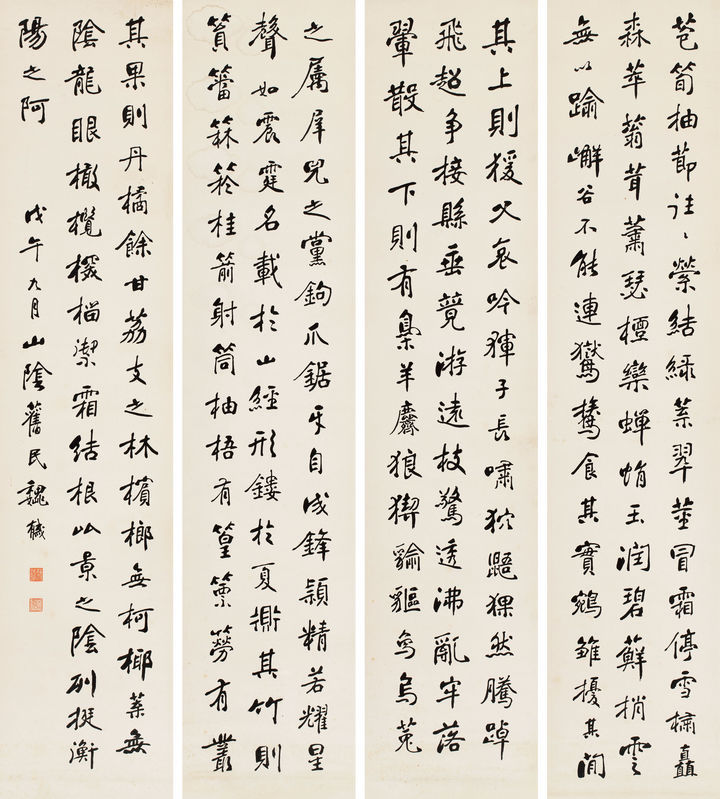 苞筍抽節往〻縈結綠葉翠莖冒霜停雪橚矗
森萃蓊茸蕭瑟檀欒蟬蜎玉潤碧鮮捎雲
無以踰嶰谷不能連鸑鷟食其實鵷雛擾其間
其上則猨父哀吟獋子長嘯狖鼯猓然騰踔
飛超爭接縣垂競游遠枝驚透沸亂牢落
翬散其下則有梟羊麡狼猰貐貙象烏菟
之屬犀兕之黨鉤爪鋸牙自成鋒穎精若耀星
聲如震霆名載於山經形鏤於夏鼎其竹則
篔簹箖箊桂箭射筒柚梧有篁篻簩有叢
其果則丹橘餘甘荔支之林檳榔無柯椰葉無
陰龍眼橄欖棎榴禦霜結根比景之陰列挺衡
陽之阿 戊午九月山陰舊民魏戫